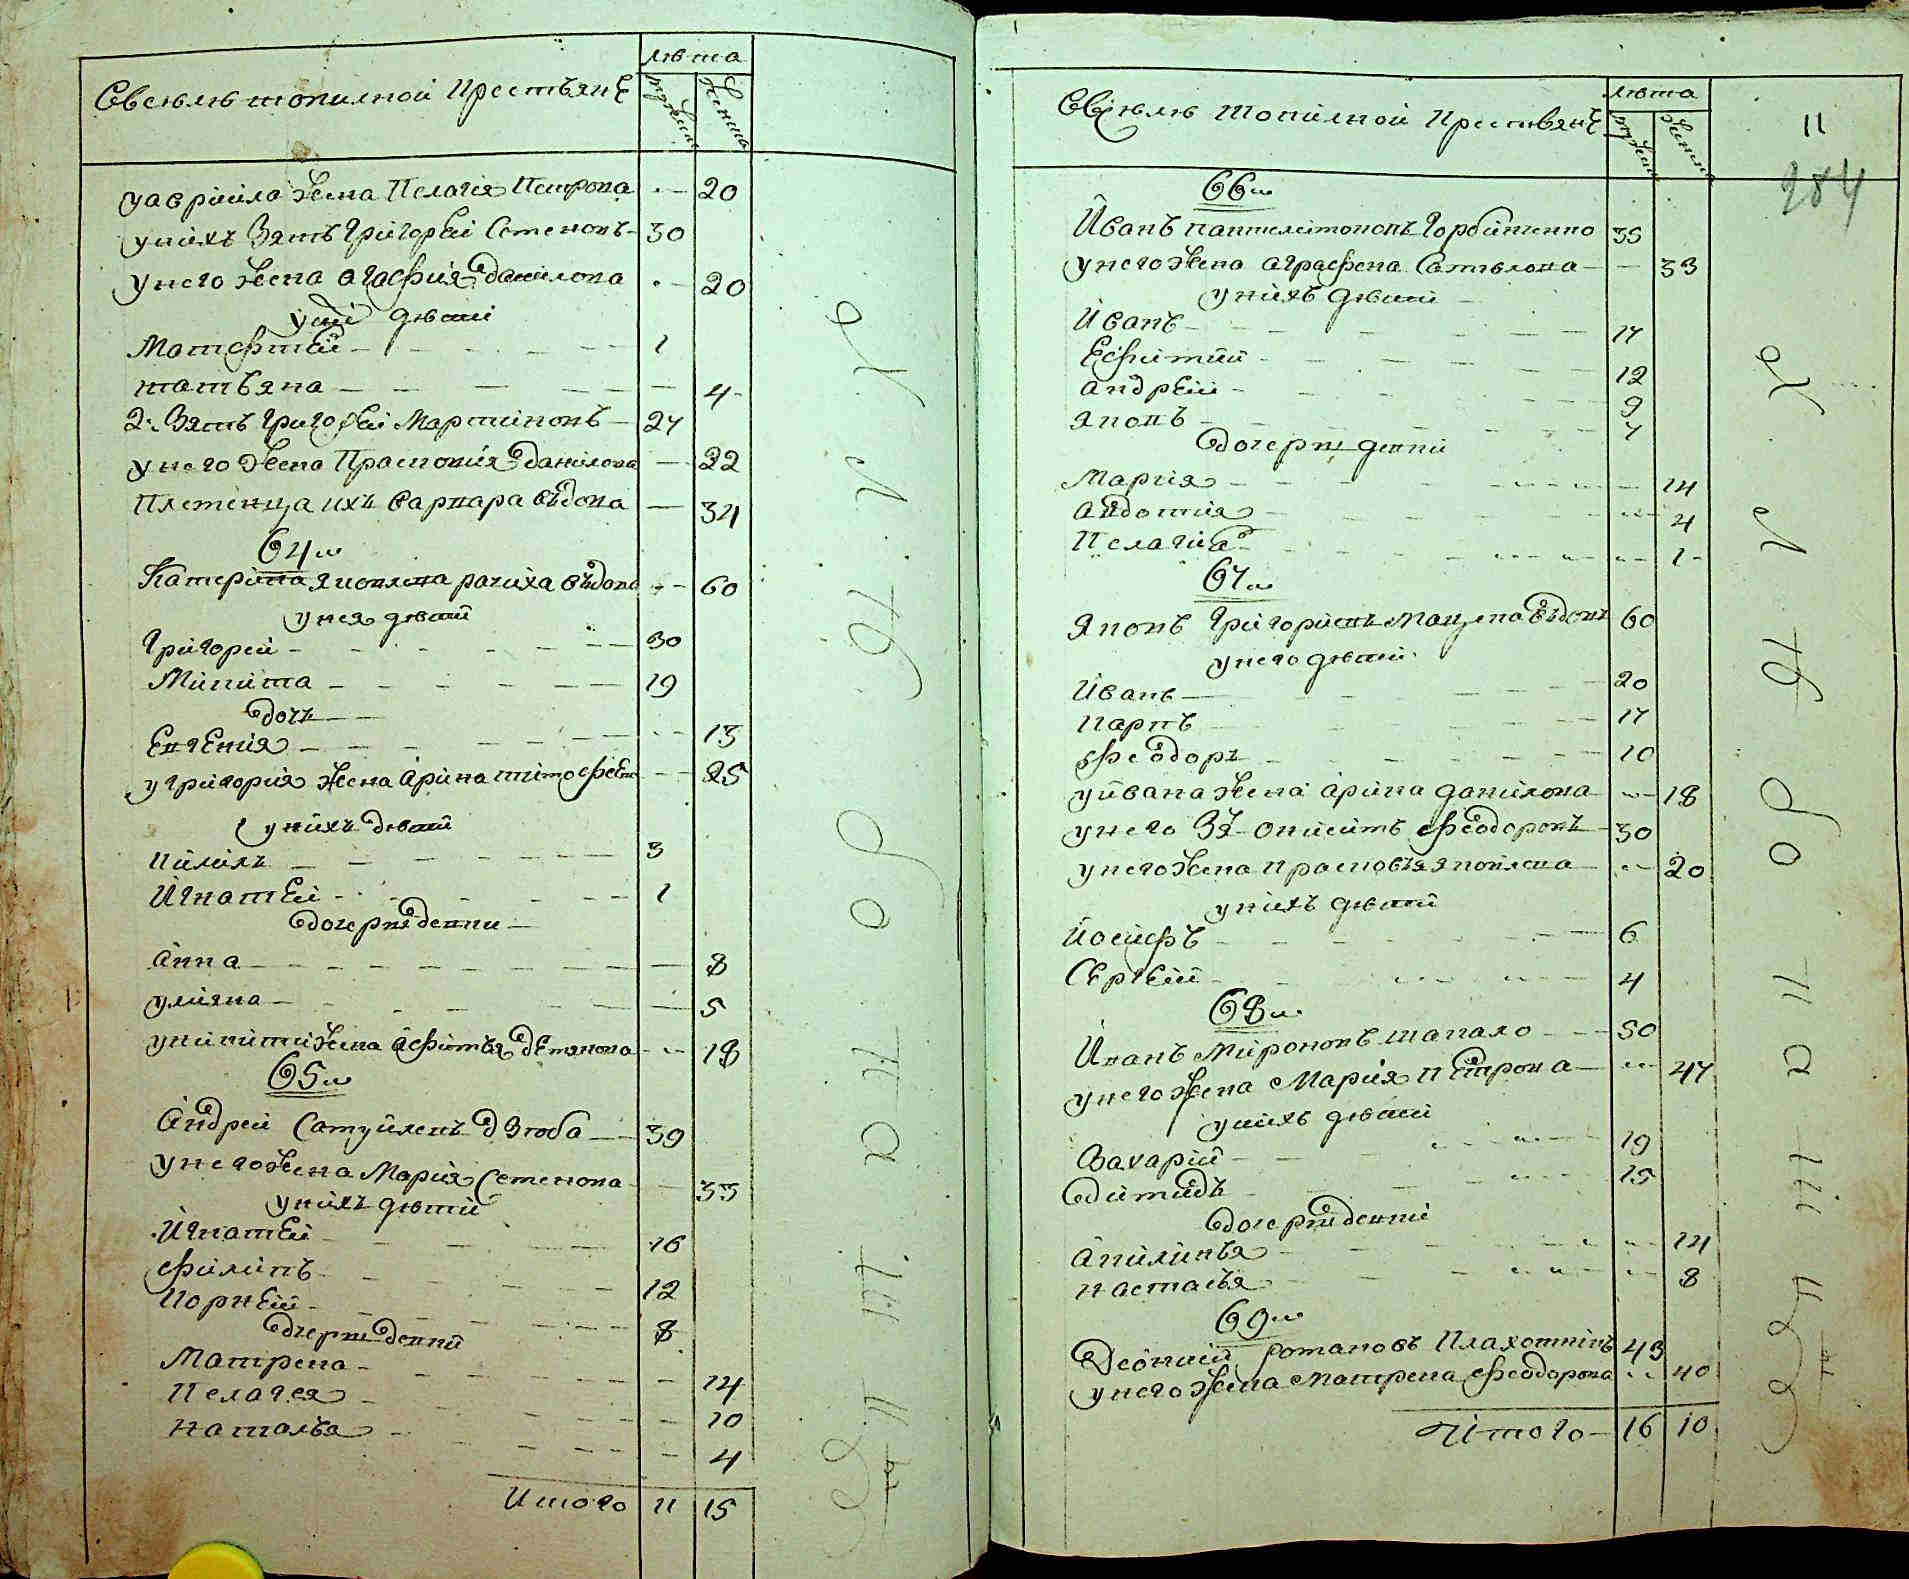 лѣта
Въ селѣ топилной крестьяне
мужеска
женска
У Гавриила жена Пелагия Петрова - 20
у них зять Григорей Семеновъ 30
у него жена Агафия Данилова - 20
у них дѣти
Матфтей 1
татьяна 4
2. Зять Григорей Мартиновъ 27
у него жена Прасковия Данилова 22
племеница ихъ варвара вдова 34
64
Катерина Яковлева рачиха вдова 60
у нея дѣти
Григорей 30
Микита 19
дочь
Евгения 13
у Григория жена Арина тимофеева 25
у нихъ дѣти
Килилъ 3
Игнатей 1
дочери девки
Анна 8
улияна 5
у никити жена Афимья демянова 18
65
Андрей Самуйлевъ дзюба 39
у него жена Мария Семенова 33
у нихъ дѣти
Игнатей 16
Филипъ 12
Корней 8
дочери девки
Матрена 14
Пелагея 10
наталья 4
Итого 11 15
лѣта
Въ селѣ топилной крестьяне
мужеска
женска
11
284
66
Иванъ пантелемоновъ Горбатенко 35
у него жена аграфена Самолова 33
у нихъ дѣти
Иванъ 17
Ефимий 12
андрей 9
яковъ 7
дочери девки
Мария 14
авдотия 4
Пелагия 1
67
Яковъ Григориевъ мацепа вдовъ 60
у него дѣти
Иванъ 20
карпъ 17
феодоръ 10
у ивана жена арина данилова 18
у него зя. Аникимъ феодоровъ 30
у него жена прасковья яковлева 20
у нихъ дѣти
Иосифъ 6
Сергей 4
68
Иванъ Мироновъ шапало 50
у него жена Мария петрова 47
у нихъ дѣти
Захарий 19
Димидъ 15
дочери девки
Акилинья 14
настасья 8
69
Леонтий романовъ Плахотникъ 43
у него жена матрена феодорова 40
Итого 16 10